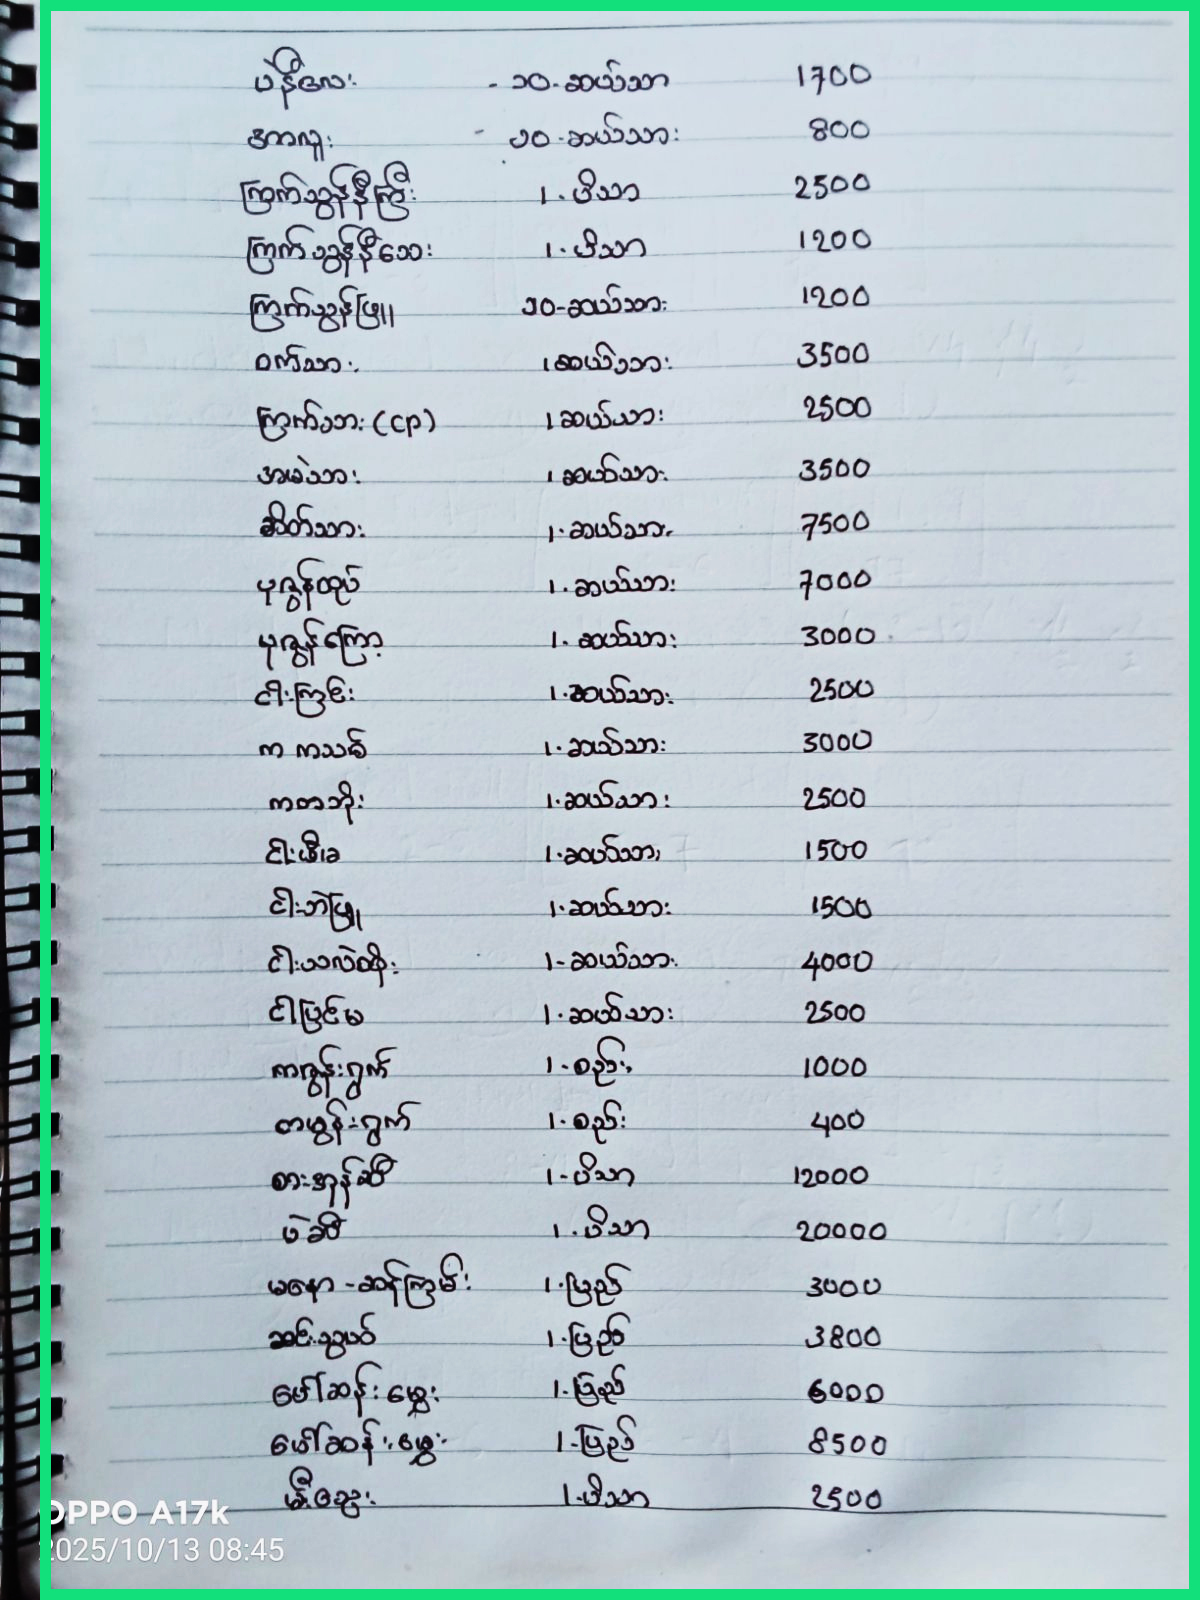 ပဲနီလေး - ၁၀-ဆယ်သာ 1700
အာလူး - ၁၀-ဆယ်သား 800
ကြက်သွန်နီကြီး 1.ပိသာ 2500
ကြက်သွန်နီသေး 1.ပိသာ 1200
ကြက်သွန်ဖြူ ၁၀-ဆယ်သား 1200
ဝက်သား 1ဆယ်သား 3500
ကြက်သား (CP) 1ဆယ်သား 2500
အမဲသား 1ဆယ်သား 3500
ဆိတ်သား 1.ဆယ်သား 7500
ပုဇွန်ထုပ် 1.ဆယ်သား 7000
ပုဇွန်ကြော့ 1.ဆယ်သား 3000
ငါးကြင်း 1.ဆယ်သား 2500
က ကသစ် 1.ဆယ်သား 3000
ကတဘိုး 1.ဆယ်သား 2500
1.ဆယ်သား 1500
ငါးဘဲဖြူ 1.ဆယ်သား 1500
ငါးသလဲထိုး 1-ဆယ်သား 4000
ငါပြင်မ 1.ဆယ်သား 2500
ကဇွန်းရွက် 1-စည်း 1000
1.စည်း 400
စားအုန်ဆီ 1-ပိသာ 12000
ပဲဆီ 1.ပိသာ 20000
မနော-ဆန်ကြမ်း 1.ပြည် 3000
ဆင်းသွယ် 1.ပြည် 3800
ပေါ်ဆန်းမွှေး 1.ပြည် 6000
ပေါ်ဆန်းမွှေး 1-ပြည် 8500
မီးသွေး 1.ပိသာ 2500
OPPO A17k
2025/10/13 08:45